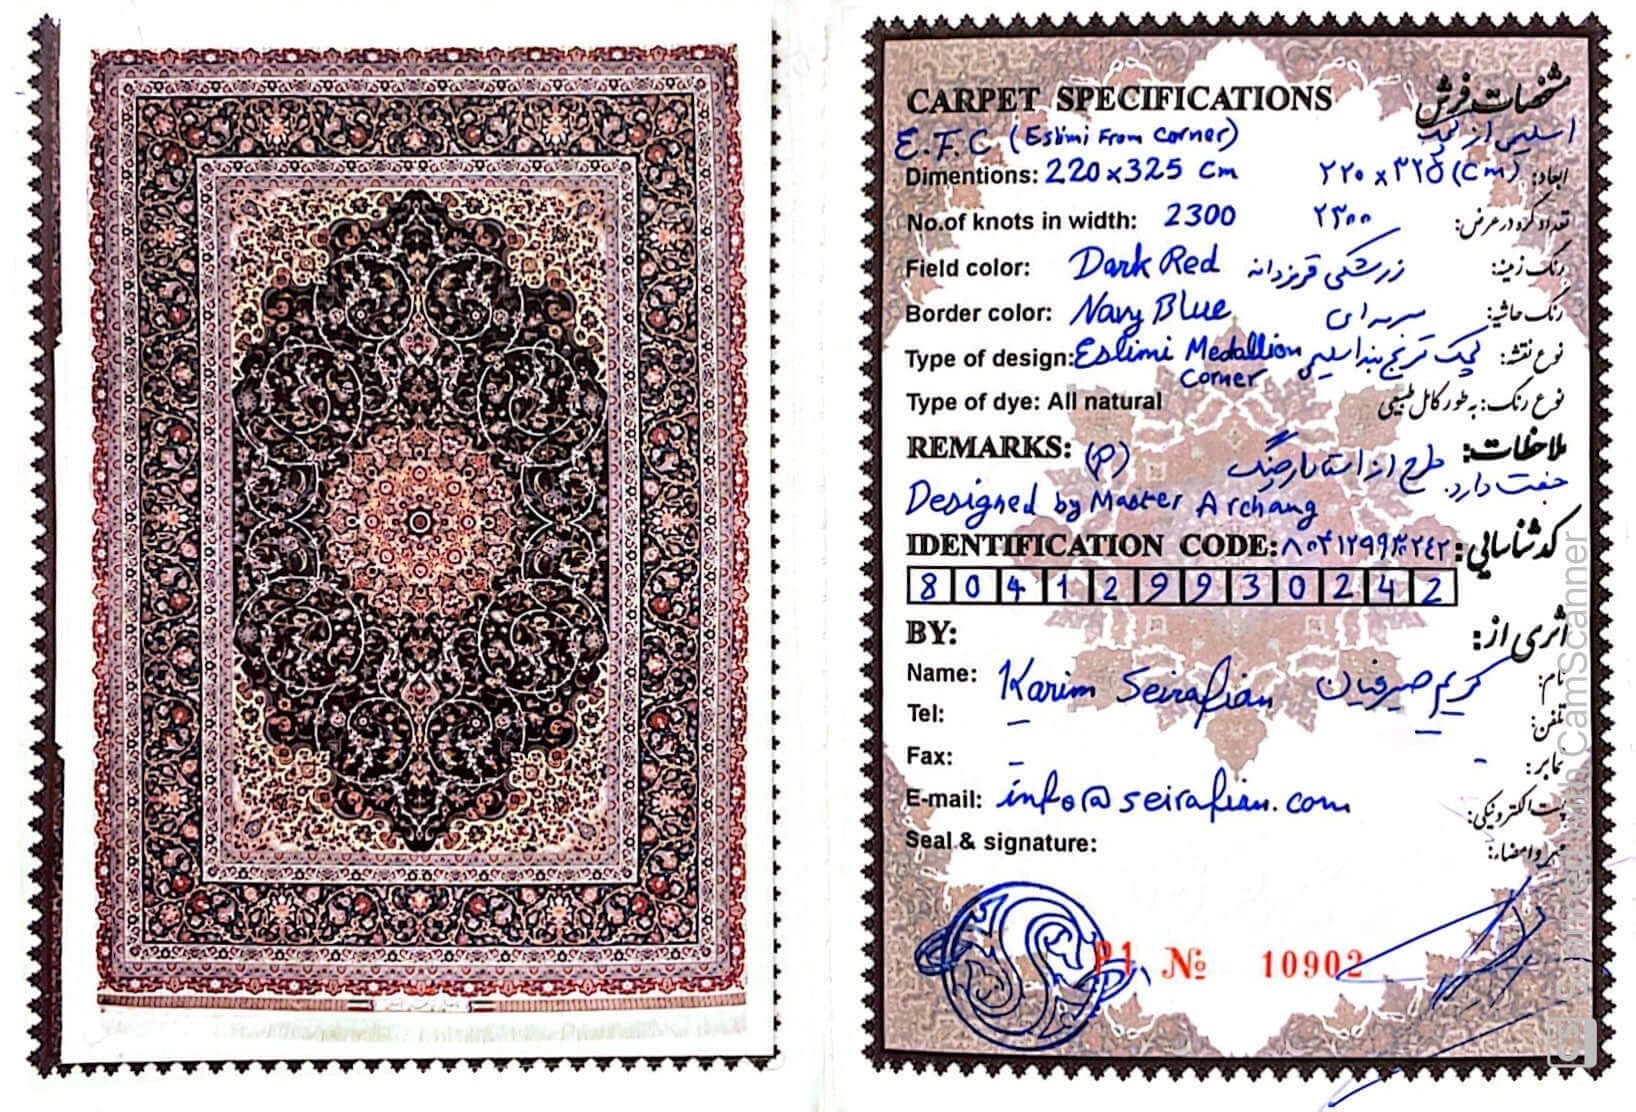 CARPET SPECIFICATIONS مشخصات فرش
E.F.C. (Eslimi From Corner) اسلیمی از لچک
Dimentions: 220x325 cm ۲۲۰ x ۳۲۵ (cm) ابعاد:
No.of knots in width: 2300 ۲۳۰۰ تعداد گره در عرض:
Field color: Dark Red زرشکی قرمزدانه رنگ زمینه:
Border color: Navy Blue سرمه ای رنگ حاشیه:
Type of design: Eslimi Medallion Corner لچک ترنج بند اسلیمی نوع نقشه:
Type of dye: All natural نوع رنگ: به طور کامل طبیعی
REMARKS: (P) طرح از استاد ارچنگ ملاحظات:
جفت دارد.
Designed by Master Archang
IDENTIFICATION CODE: ۸۰۴۱۲۹۹۳۰۲۴۲ کد شناسایی:
804129930242
BY: اثری از:
Name: Karim Seirafian کریم صیرفیان نام:
Tel: - - تلفن:
Fax: - - نمابر:
E-mail: info@seirafian.com پست الکترونیکی:
Seal & signature: مهر و امضاء:
P1 № 10902
Scanned with CamScanner